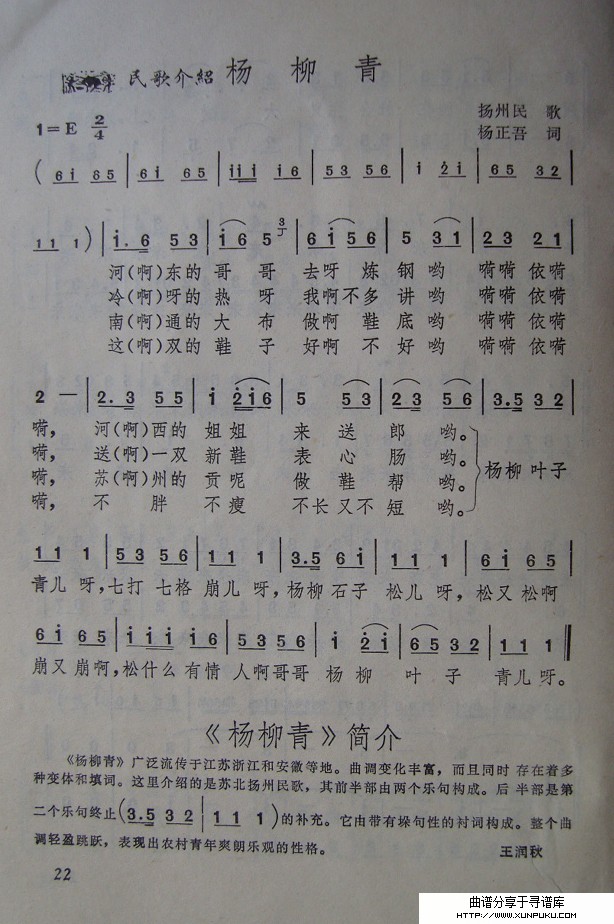 民歌介紹 杨 柳 青
扬州民 歌
1=E 2/4
杨正吾 词
( 6 i 6 5 | 6 i 6 5 | i i i i 6 | 5 3 5 6 | i 2 i | 6 5 3 2 |
1 1 1 ) | i. 6 5 3 | i 6 5 3 | 6 i 5 6 | 5 3 1 | 2 3 2 1 |
河(啊)东的 哥 哥 去呀 炼 钢 哟 嗬嗬 依嗬
冷(啊)呀的 热 呀 我啊不 多 讲 哟 嗬嗬 依嗬
南(啊)通的 大 布 做啊 鞋 底 哟 嗬嗬 依嗬
这(啊)双的 鞋 子 好啊 不 好 哟 嗬嗬 依嗬
2 — | 2. 3 5 5 | i 2 i 6 | 5 5 3 | 2 3 5 6 | 3. 5 3 2 |
嗬, 河(啊)西的 姐 姐 来 送 郎 哟。
嗬, 送(啊)一双 新 鞋 表 心 肠 哟。
嗬, 苏(啊)州的 贡 呢 做 鞋 帮 哟。
嗬, 不 胖 不 瘦 不长 又不 短 哟。
杨柳 叶子
1 1 1 | 5 3 5 6 | 1 1 1 | 3. 5 6 i | 1 1 1 | 6 i 6 5 |
青儿 呀, 七打 七格 崩儿 呀, 杨柳 石子 松儿 呀, 松又 松啊
6 i 6 5 | i i i i 6 | 5 3 5 6 | i 2 i | 6 5 3 2 | 1 1 1 ‖
崩又 崩啊, 松什么 有情 人啊哥哥 杨 柳 叶 子 青儿 呀。
《杨柳青》简介
《杨柳青》广泛流传于江苏浙江和安徽等地。曲调变化丰富，而且同时 存在着多
种变体和填词。这里介绍的是苏北扬州民歌，其前半部由两个乐句构成。后 半部是第
二个乐句终止( 3. 5 3 2 | 1 1 1 )的补充。它由带有垛句性的衬词构成。整个曲
调轻盈跳跃，表现出农村青年爽朗乐观的性格。 王润秋
22
曲谱分享于寻谱库
http://WWW.XUNPUKU.COM